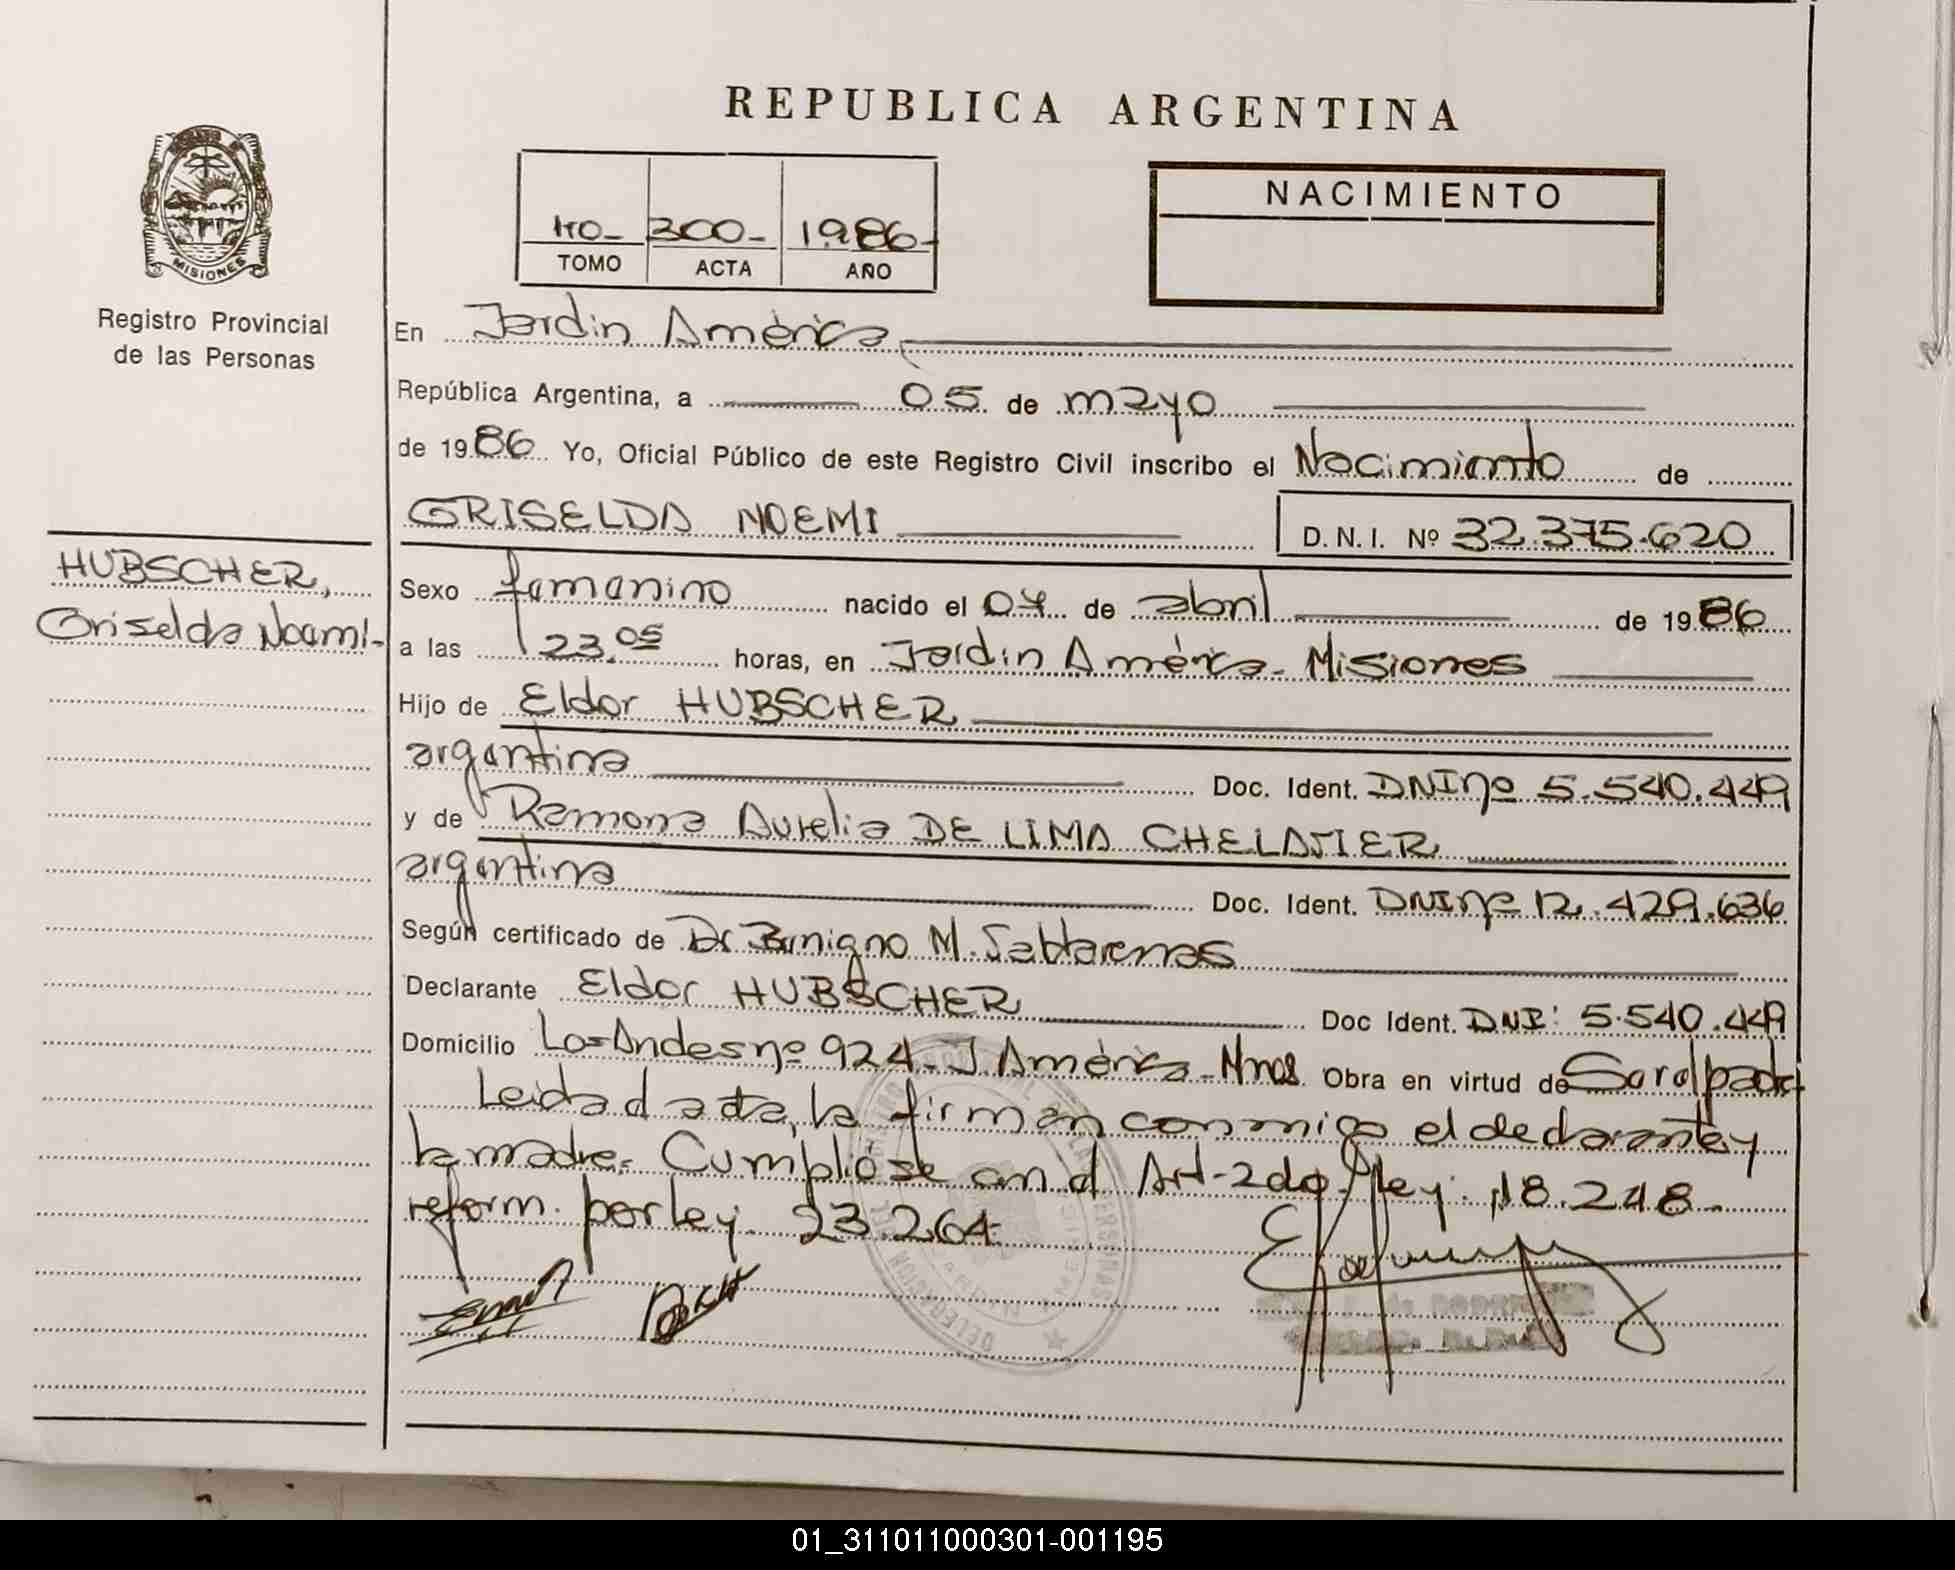 REPUBLICA ARGENTINA
MISIONES
Registro Provincial
de las Personas
300- 1986-
TOMO ACTA AÑO
NACIMIENTO
En Jardín América
República Argentina, a 05 de mayo
de 1986 Yo, Oficial Público de este Registro Civil inscribo el Nacimiento de
GRISELDA NOEMI
D.N.I. Nº 32.375.620
HUBSCHER,
Griselda Noemi-
Sexo femenino nacido el 04 de abril de 1986
a las 23.05 horas, en Jardín América - Misiones
Hijo de Eldor HUBSCHER
argentina Doc. Ident. DNI nº 5.540.449
y de Ramona Aurelia DE LIMA
argentina Doc. Ident. DNI nº 12.429.636
Según certificado de Dr Benigno M.
Declarante Eldor HUBSCHER Doc Ident. DNI: 5.540.449
Domicilio Los Andes nº 924 - J. América - Mnes. Obra en virtud de
Leida el acta, la firman conmigo el declarante y
la madre. Cumpliose con el Art-2do ley. 18.248-
reform. por ley. 23.264-
01_311011000301-001195